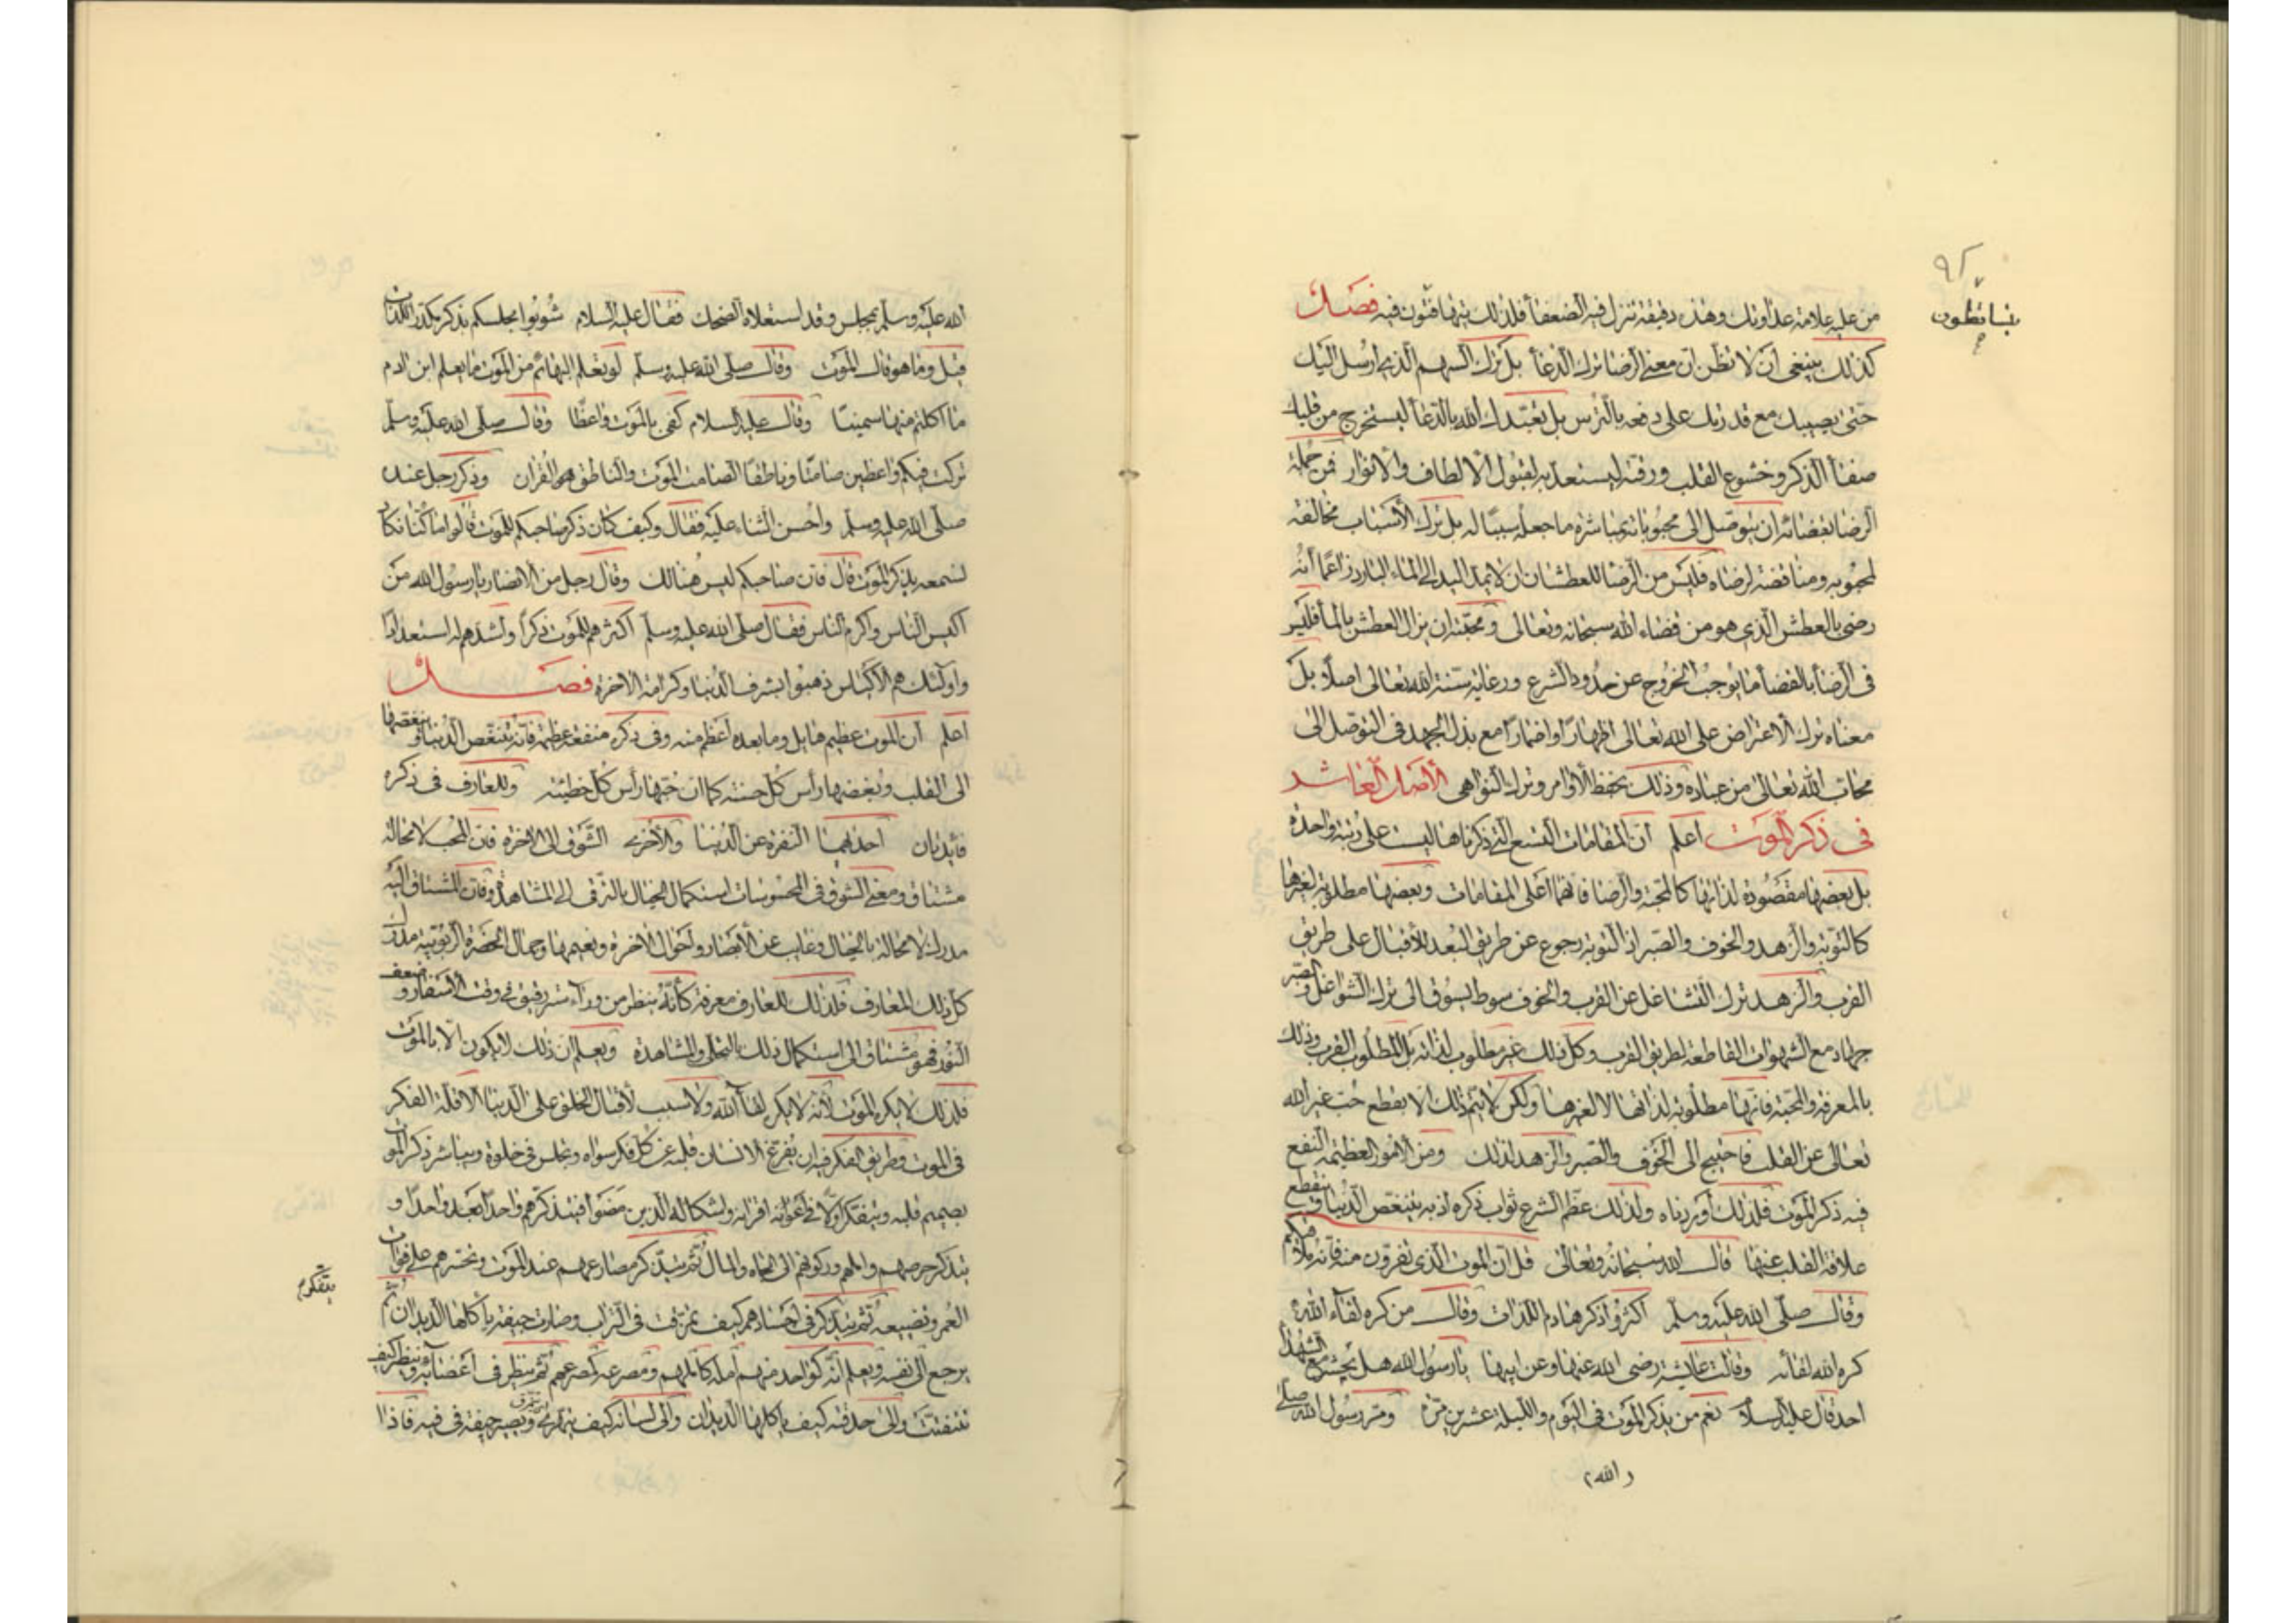 ٩٢
يتساقطون
من عليه علامة عداوتك وهذه دقيقة تنزل فيه الضعفأ فلذلك يتهافتون فيه فصل
كذلك ينبغي ان لا تظن ان معنى الرضا ترك الدعأ بل ترك السهم الذى ارسل اليك
حتى يصيبك مع قدرتك على دفعه بالترس بل تعبدك الله بالدعأ ليستخرج من قلبك
صفأ الذكر وخشوع القلب ورقته ليستعد به لقبول الالطاف والانوار فمن جملة
الرضا بقضائه ان يتوصل الى محبوباته بمباشرة ما جعله سببا له بل ترك الأسباب مخالفة
لمحبوبه ومناقضة لرضاه فليس من الرضا للعطشان ان لا يمد اليد الى الماء البارد زاعما أنه
رضى بالعطش الذى هو من قضاء الله سبحانه وتعالى ومحبته ان يزال العطش بالمأ فليس
فى الرضأ بالقضأ ما يوجب الخروج عن حدود الشرع ورعاية سنة الله تعالى اصلا بل
معناه ترك الاعتراض على الله تعالى اظهارا واضمارا مع بذل الجهد فى التوصل الى
محاب الله تعالى من عباده وذلك بحفظ الأوامر وترك النواهى الأصل العاشر
فى ذكر الموت اعلم ان المقامات التسع التى ذكرناها ليست على رتبة واحدة
بل بعضها مقصودة لذاتها كالمحبة والرضا فانهما اعلى المقامات وبعضها مطلوبة لغيرها
كالتوبة والزهد والخوف والصبر اذ التوبة رجوع عن طريق البعد للأقبال على طريق
القرب والزهد ترك الشاغل عن القرب والخوف سوط يسوق الى ترك الشواغل والصبر
جهاد مع الشهوات القاطعة لطريق القرب وكل ذلك غير مطلوب لذاته بل المطلوب القرب وذلك
بالمعرفة والمحبة فانهما مطلوبة لذاتها لا لغيرها ولكن لا يتم ذلك الا بقطع حب غير الله
تعالى عن القلب فاحتيج الى الخوف والصبر والزهد لذلك ومن الامور العظيمة النفع
فيه ذكر الموت فلذلك أوردناه ولذلك عظم الشرع ثواب ذكره اذ به ينتغص الدنيا وينقطع
علاقة القلب عنها قال الله سبحانه وتعالى قل ان الموت الذى تفرون منه فانه ملاقيكم
وقال صلى الله عليه وسلم اكثروا ذكر هاذم اللذات وقال من كره لقآء الله
كره الله لقائه وقالت عايشة رضى الله عنها وعن ابيها يا رسول الله هل يحشر مع الشهدا
احد قال عليه السلام نعم من يذكر الموت فى اليوم والليلة عشرين مرة ومر رسول الله صلى
(الله)
الله عليه وسلم بمجلس وقد استعلاه الضحك فقال عليه السلام شوبوا مجلسكم بذكر مكدر اللذات
قيل وما هو قال الموت وقال صلى الله عليه وسلم لو تعلم البهائم من الموت ما يعلم ابن ادم
ما اكلتم منها سمينا وقال عليه السلام كفى بالموت واعظا وقال صلى الله عليه وسلم
تركت فيكم واعظين صامتا وناطقا الصامت الموت والناطق هو القران وذكر رجل عنده
صلى الله عليه وسلم واحسن الثناء عليه فقال وكيف كان ذكر صاحبكم للموت قالوا ما كنا نكاد
نسمعه يذكر الموت قال فان صاحبكم ليس هنالك وقال رجل من الانصار يا رسول الله من
اكيس الناس واكرم الناس فقال صلى الله عليه وسلم اكثرهم للموت ذكرا واشدهم له استعدادا
واولئك هم الأكياس ذهبوا بشرف الدنيا وكرامة الاخرة فصل
اعلم ان الموت عظيم هايل وما بعده اعظم منه وفى ذكره منفعة عظيمة فانه ينغص الدنيا وببغضها
الى القلب وبغضها رأس كل حسنة كما ان حبها رأس كل خطيئة وللعارف فى ذكره
فائدتان احدهما النفرة عن الدنيا والأخرى الشوق الى الاخرة فان المحب لا محالة
مشتاق ومعنى الشوق فى المحسوسات استكمال الخيال بالترقى الى المشاهدة فان المشتاق اليه
مدرك لا محالة بالخيال وغايب عن الأبصار واحوال الاخرة ونعيمها وجمال الحضرة الربوبية مدرك
كل ذلك للعارف فلذلك للعارف معرفة كأنه ينظر من ورآء ستر رقيق فى وقت الأسفار وضعف
النور فهو مشتاق الى استكمال ذلك بالتجلى والمشاهدة ويعلم ان ذلك لا يكون الا بالموت
فلذلك لا يكره الموت لأنه لا يكره لقأ الله ولا سبب لأقبال الخلق على الدنيا الا قلة الفكر
فى الموت وطريق الفكر فيه ان يفرغ الانسان قلبه عن كل فكر سواه ويجلس فى خلوة ويباشر ذكر الموت
بصميم قلبه ويتفكر اولا فى اقرانه واشكاله الذين مضوا فيتذكرهم واحدا بعد واحد او
يتذكر حرصهم واملهم وركونهم الى الجاه والمال ثم يتذكر مصارعهم عند الموت وتحسرهم على فوات
العمر وتضييعه ثم يتذكر فى اجسادهم كيف تمزقت فى التراب وصارت جيفة يأكلها الديدان ثم
يتفكر
يرجع الى نفسه ويعلم انه كواحد منهم امله كأملهم ومصرعه كمصرعهم ثم ينظر فى اعضائه وينظر كيف
تتفتت والى حدقته كيف يأكلها الديدان والى لسانه كيف يتهرى وتصير جيفة فى فيه فاذا